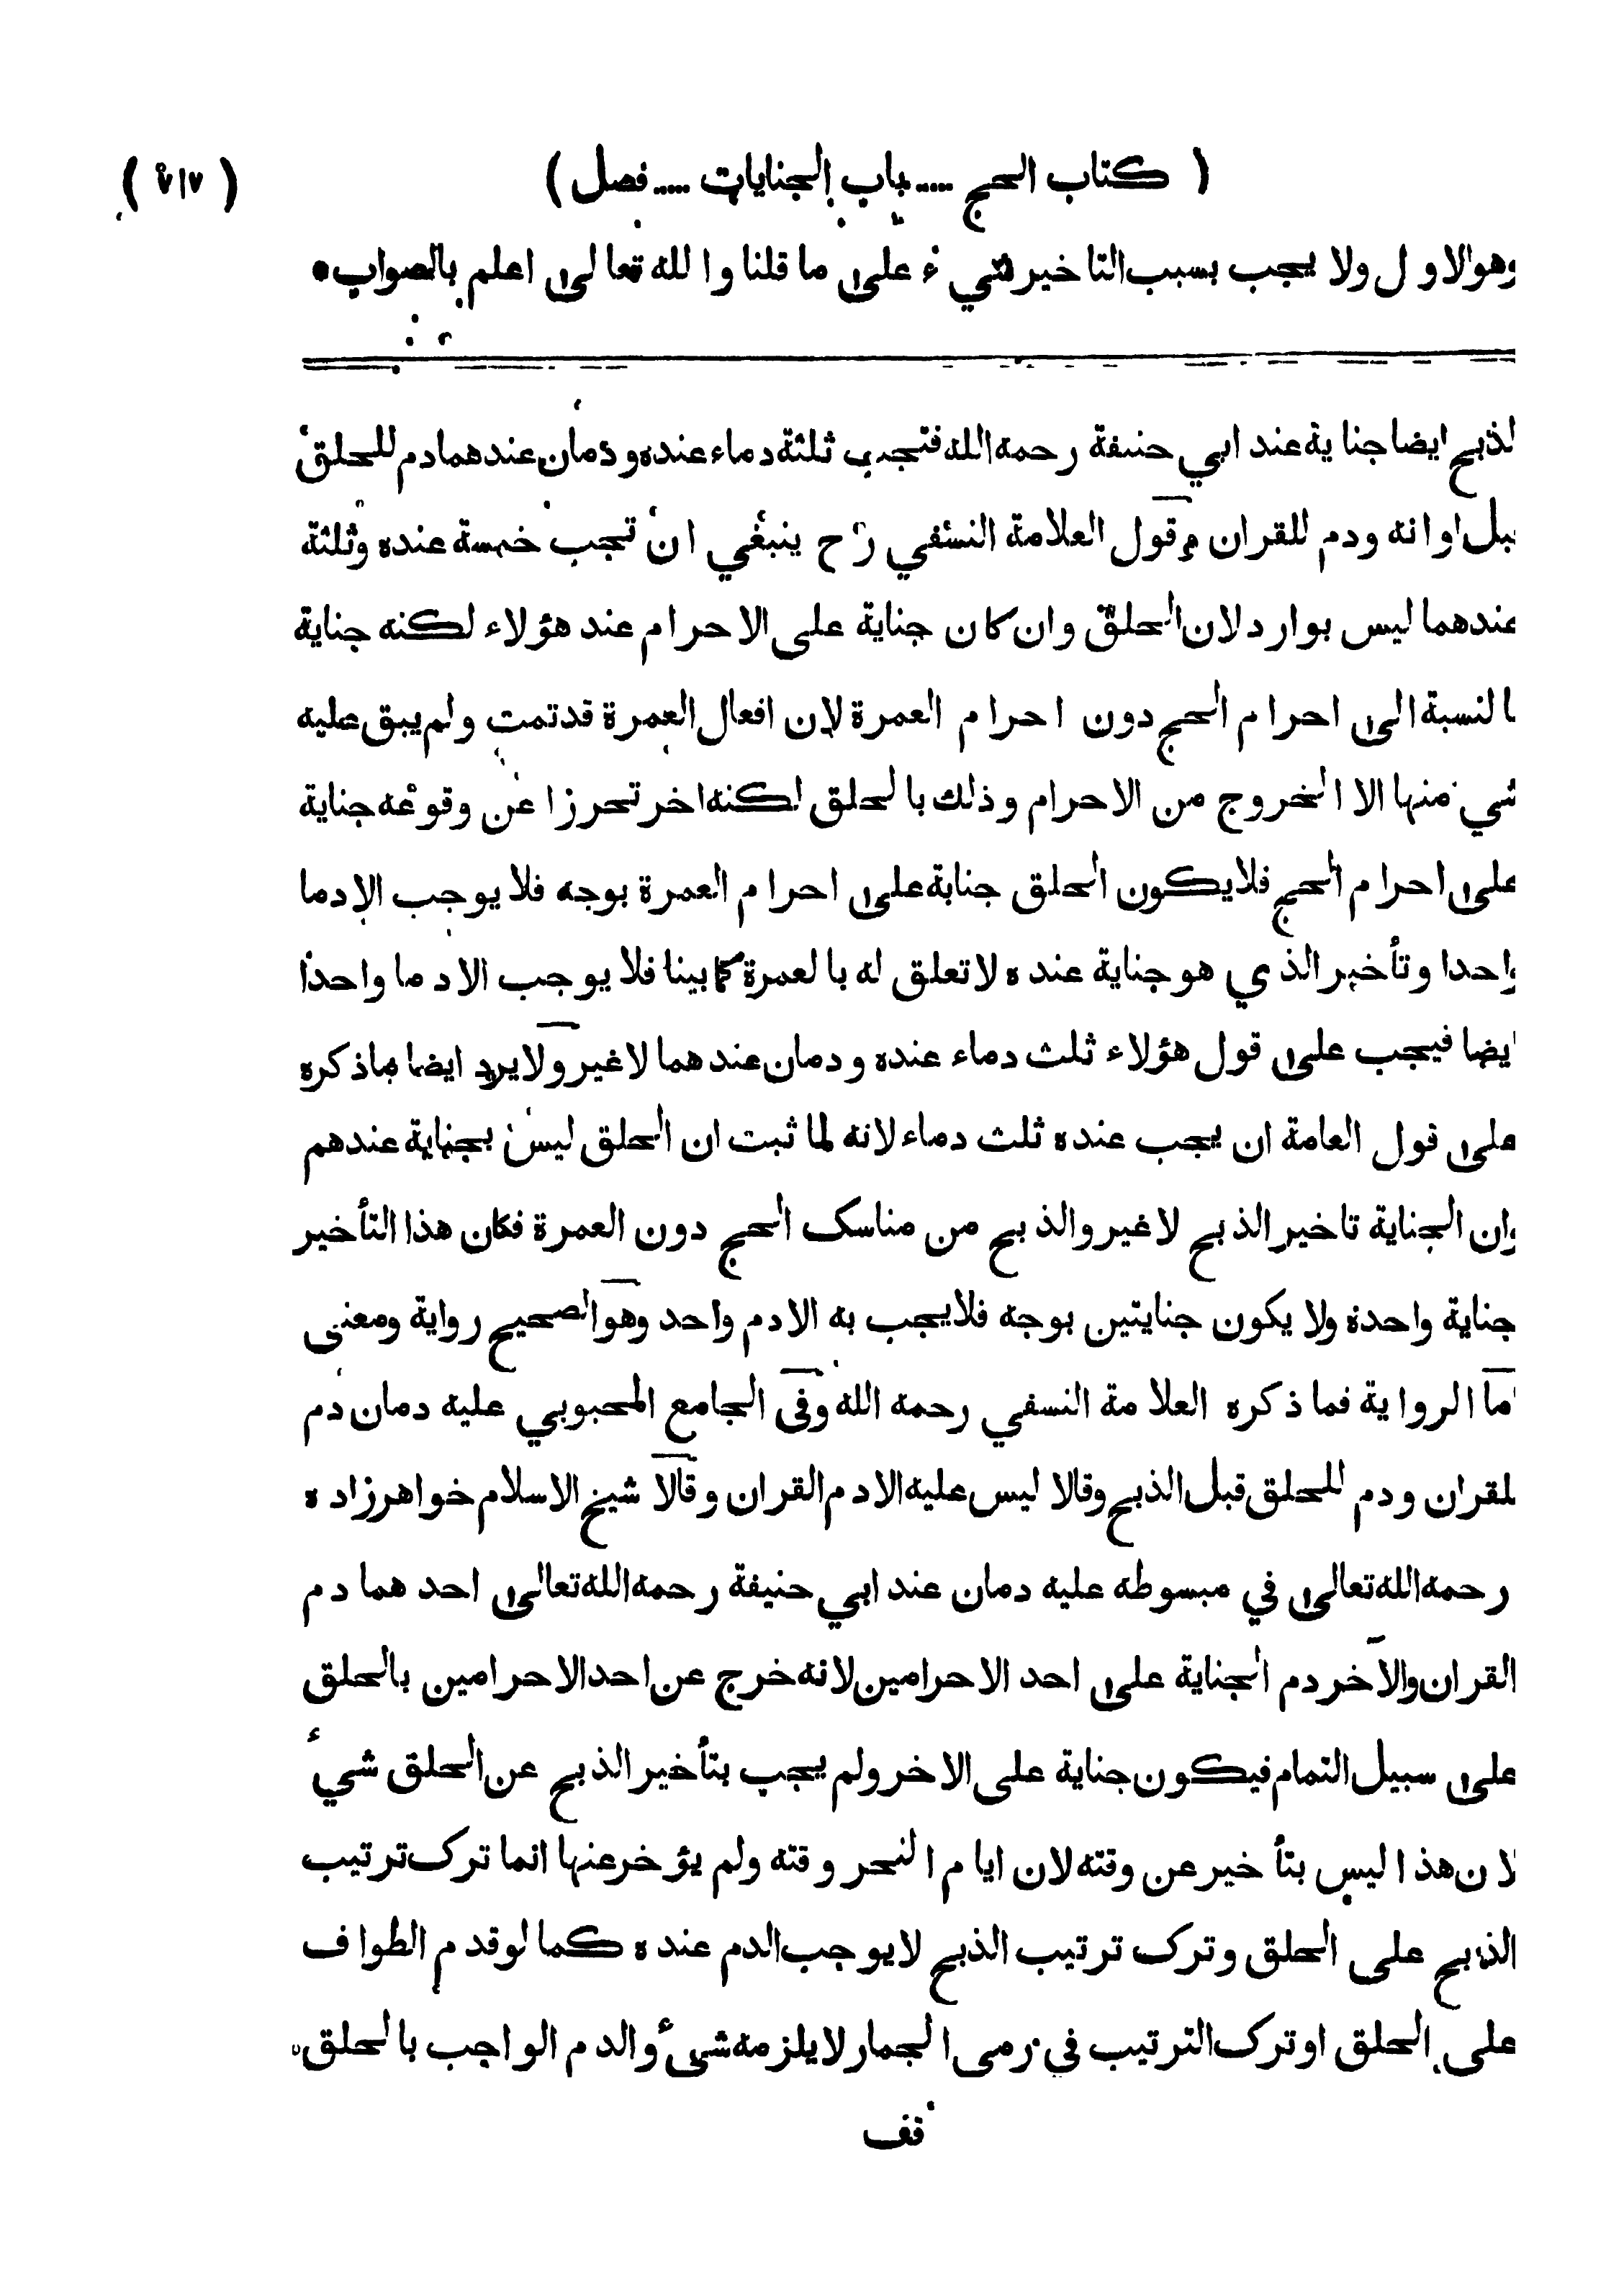 ( كتاب الحج ..... باب الجنايات ..... فصل ) ( ٧١٧ )
وهو الاول ولا يجب بسبب التاخير شيء على ما قلنا والله تعالى اعلم بالصواب •
لذبح ايضا جناية عند ابي حنيفة رحمه الله فتجب ثلثة دماء عنده ودمان عندهما دم للحلق
بل اوانه ودم للقران وقول العلامة النسفي رح ينبغي ان تجب خمسة عنده وثلثة
عندهما ليس بوارد لان الحلق وان كان جناية على الاحرام عند هؤلاء لكنه جناية
بالنسبة الى احرام الحج دون احرام العمرة لان افعال العمرة قد تمت ولم يبق عليه
شي منها الا الخروج من الاحرام وذلك بالحلق لكنه اخر تحرزا عن وقوعه جناية
على احرام الحج فلا يكون الحلق جناية على احرام العمرة بوجه فلا يوجب الا دما
واحدا وتأخير الذي هو جناية عنده لا تعلق له بالعمرة كما بينا فلا يوجب الا دما واحدا
ايضا فيجب على قول هؤلاء ثلث دماء عنده ودمان عندهما لا غير ولا يرد ايضا ماذكره
على قول العامة ان يجب عنده ثلث دماء لانه لما ثبت ان الحلق ليس بجناية عندهم
وان الجناية تاخير الذبح لا غير والذبح من مناسك الحج دون العمرة فكان هذا التأخير
جناية واحدة ولا يكون جنايتين بوجه فلا يجب به الا دم واحد وهو الصحيح رواية ومعنى
اما الرواية فما ذكره العلامة النسفي رحمه الله وفي الجامع المحبوبي عليه دمان دم
للقران ودم للحلق قبل الذبح وقالا ليس عليه الا دم القران وقالا شيخ الاسلام خواهرزاده
رحمه الله تعالى في مبسوطه عليه دمان عند ابي حنيفة رحمه الله تعالى احدهما دم
القران والآخر دم الجناية على احد الاحرامين لانه خرج عن احد الاحرامين بالحلق
على سبيل التمام فيكون جناية على الاخر ولم يجب بتأخير الذبح عن الحلق شيئ
لان هذا ليس بتأخير عن وقته لان ايام النحر وقته ولم يؤخر عنها انما ترك ترتيب
الذبح على الحلق وترك ترتيب الذبح لا يوجب الدم عنده كما لو قدم الطواف
على الحلق او ترك الترتيب في رمى الجمار لا يلزمه شئ والدم الواجب بالحلق
قف